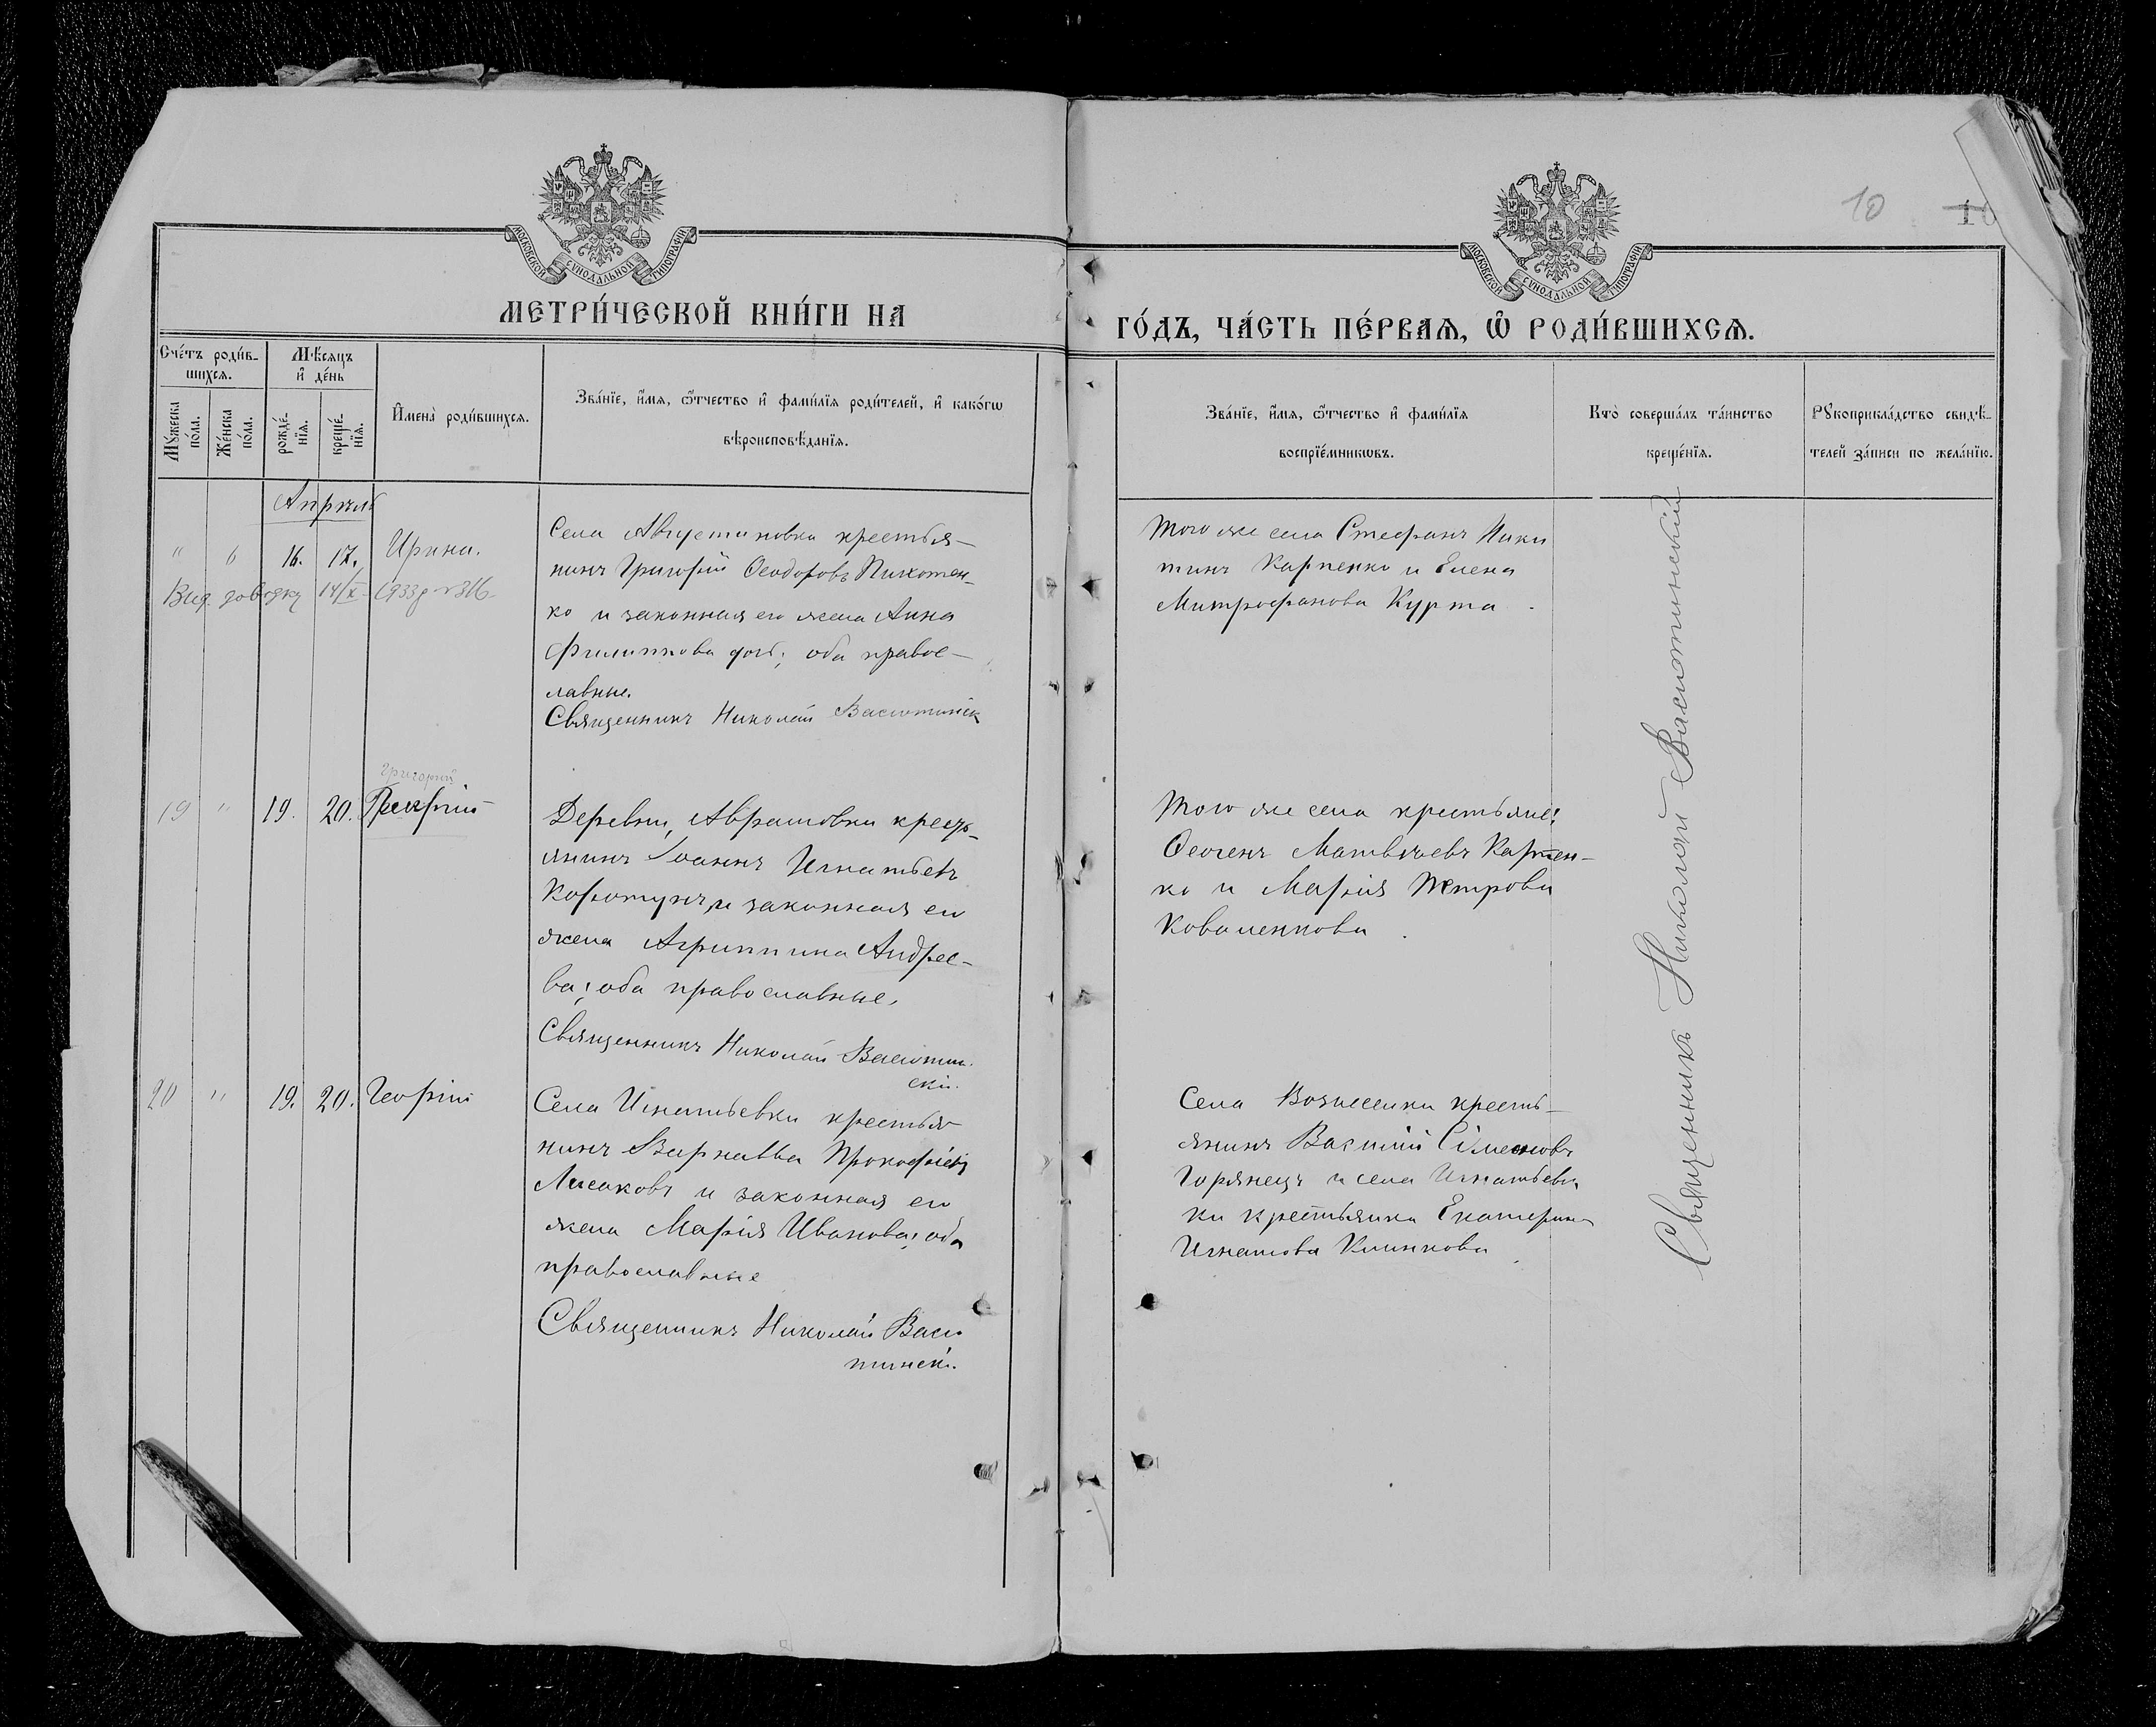 10 10
МОСКОВСКОЙ СѴНОДАЛЬНОЙ ТИПОГРАФИИ
МОСКОВСКОЙ СѴНОДАЛЬНОЙ ТИПОГРАФИИ
МЕТРИ́ЧЕСКОЙ КНИ́ГИ НА
ГО́ДЪ, ЧА́СТЬ ПЕ́РВАѦ, Ѡ҆ РОДИ́ВШИХСѦ.
Сче́тъ роди́в-
шихсѧ.
Мѣ́сяцъ
и҆ де́нь
Мꙋ́жеска
по́ла.
Же́нска
по́ла.
рожде́-
нїѧ.
креще́-
нїѧ.
И҆мена̀ роди́вшихсѧ.
Зва́нїе, и҆́мѧ, ѻ҆́тчество и҆ фами́лїѧ роди́телей, и҆ како́гѡ
вѣроисповѣ́данїѧ.
Зва́нїе, и҆́мѧ, ѻ҆́тчество и҆ фами́лїѧ
воспрїе́мникѡвъ.
Кто̀ соверша́лъ та́инство
креще́нїѧ.
Рꙋкоприкла́дство свидѣ́-
телей за́писи по жела́нїю.
Апрѣль
" 6 16. 17. Ирина.
Вид. довідку 14/X 1933р № 316
Села Августиновки крестья-
нинъ Григорій Ѳеодоровъ Пихотен-
ко и законная его жена Анна
Филиппова, оба правос-
лавные.
Священникъ Николай Васютинск
Того же села Стефанъ Ники
тинъ Карпенко и Елена
Митрофанова Курта.
Григорий
19 " 19. 20.
Деревни, Абрамовки крест-
янинъ Іоаннъ Игнатьевъ
Коротунъ, и законная его
жена Агриппина Андрее-
ва; оба православные,
Священникъ Николай Васютин
скій.
Того же села крестьяне:
Ѳеогенъ Матвѣевъ Карпен-
ко и Марія Петрова
Коваленкова.
20 " 19. 20. Георгій
Села Игнатьевки крестья
нинъ Варнавва Прокофіевъ
Лисаковъ и законная его
жена Марія Иванова; оба
православные
Священникъ Николай Васю
тинскій.
Села Вознесенки кресть-
янинъ Василій Сімеоновъ
Горянецъ и села Игнатьев
ки крестьянка Екатерина
Игнатова Климкова.
Священникъ Николай Васютинскій